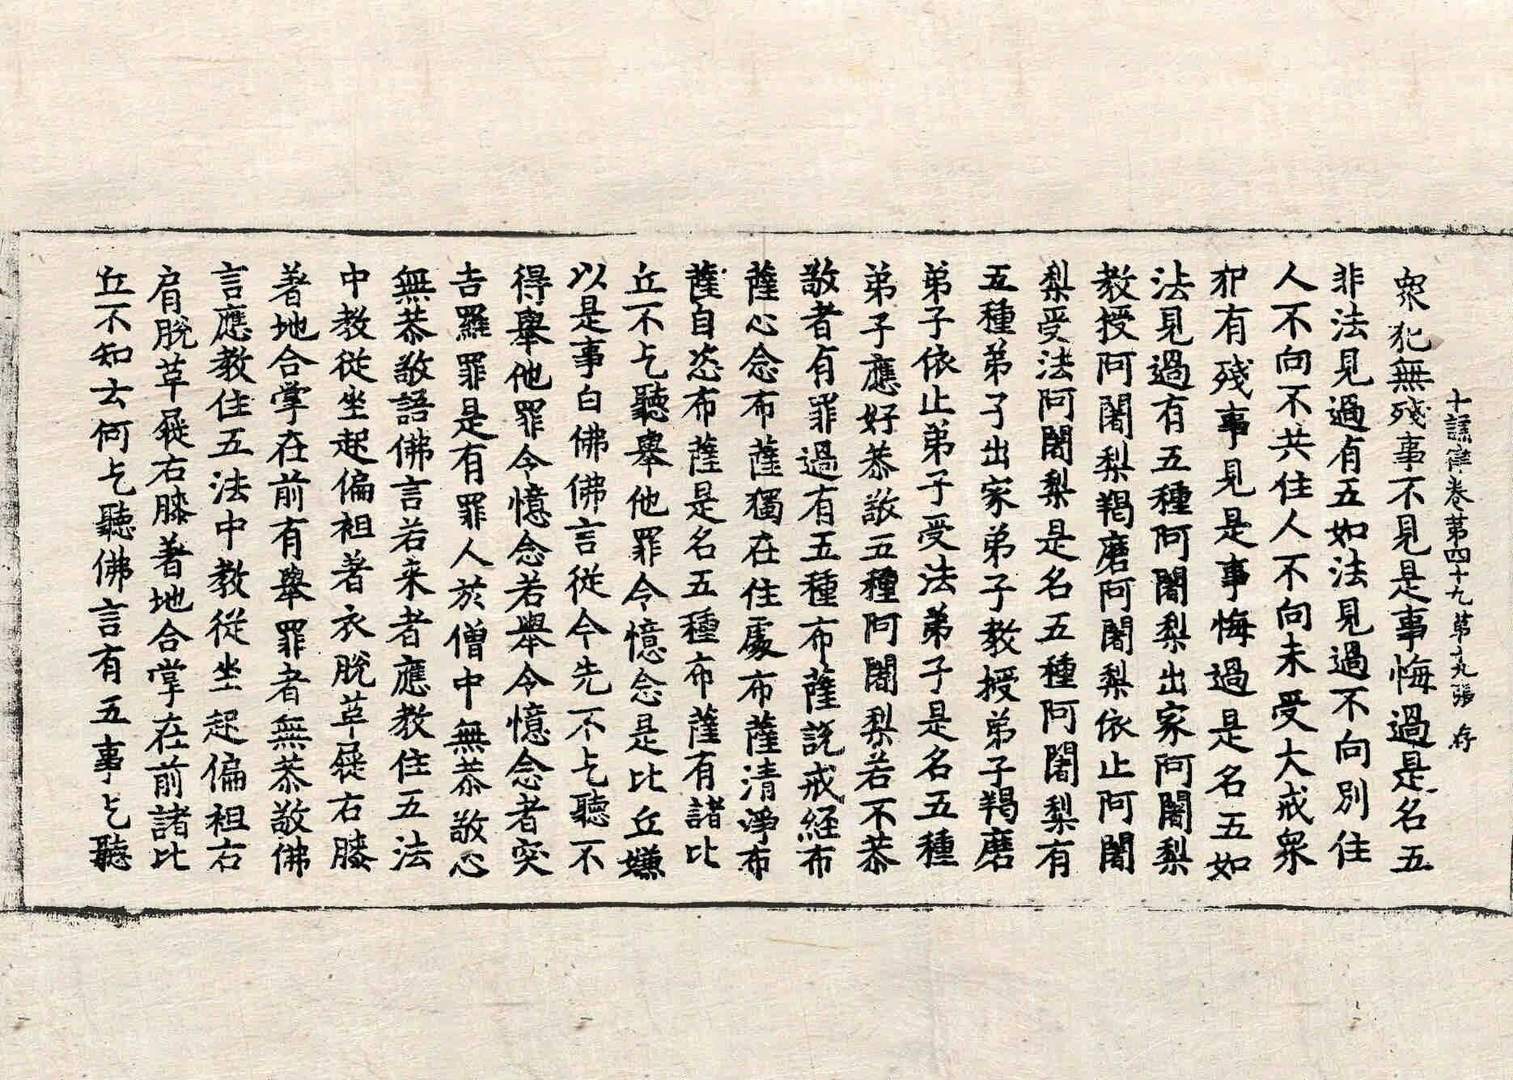 十誦律卷第四十九 第十九張 存
衆犯無殘事不見是事悔過是名五
非法見過有五如法見過不向別住
人不向不共住人不向未受大戒衆
犯有殘事見是事悔過是名五如
法見過有五種阿闍梨出家阿闍梨
教授阿闍梨羯磨阿闍梨依止阿闍
梨受法阿闍梨是名五種阿闍梨有
五種弟子出家弟子教授弟子羯磨
弟子依止弟子受法弟子是名五種
弟子應好恭敬五種阿闍梨若不恭
敬者有罪過有五種布薩說戒經布
薩心念布薩獨在住處布薩清淨布
薩自恣布薩是名五種布薩有諸比
丘不乞聽舉他罪令憶念是比丘嫌
以是事白佛佛言從今先不乞聽不
得舉他罪令憶念若舉令憶念者突
吉羅罪是有罪人於僧中無恭敬心
無恭敬語佛言若来者應教住五法
中教從坐起偏袒著衣脫草屣右膝
著地合掌在前有舉罪者無恭敬佛
言應教住五法中教從坐起偏袒右
肩脫草屣右膝著地合掌在前諸比
丘不知云何乞聽佛言有五事乞聽